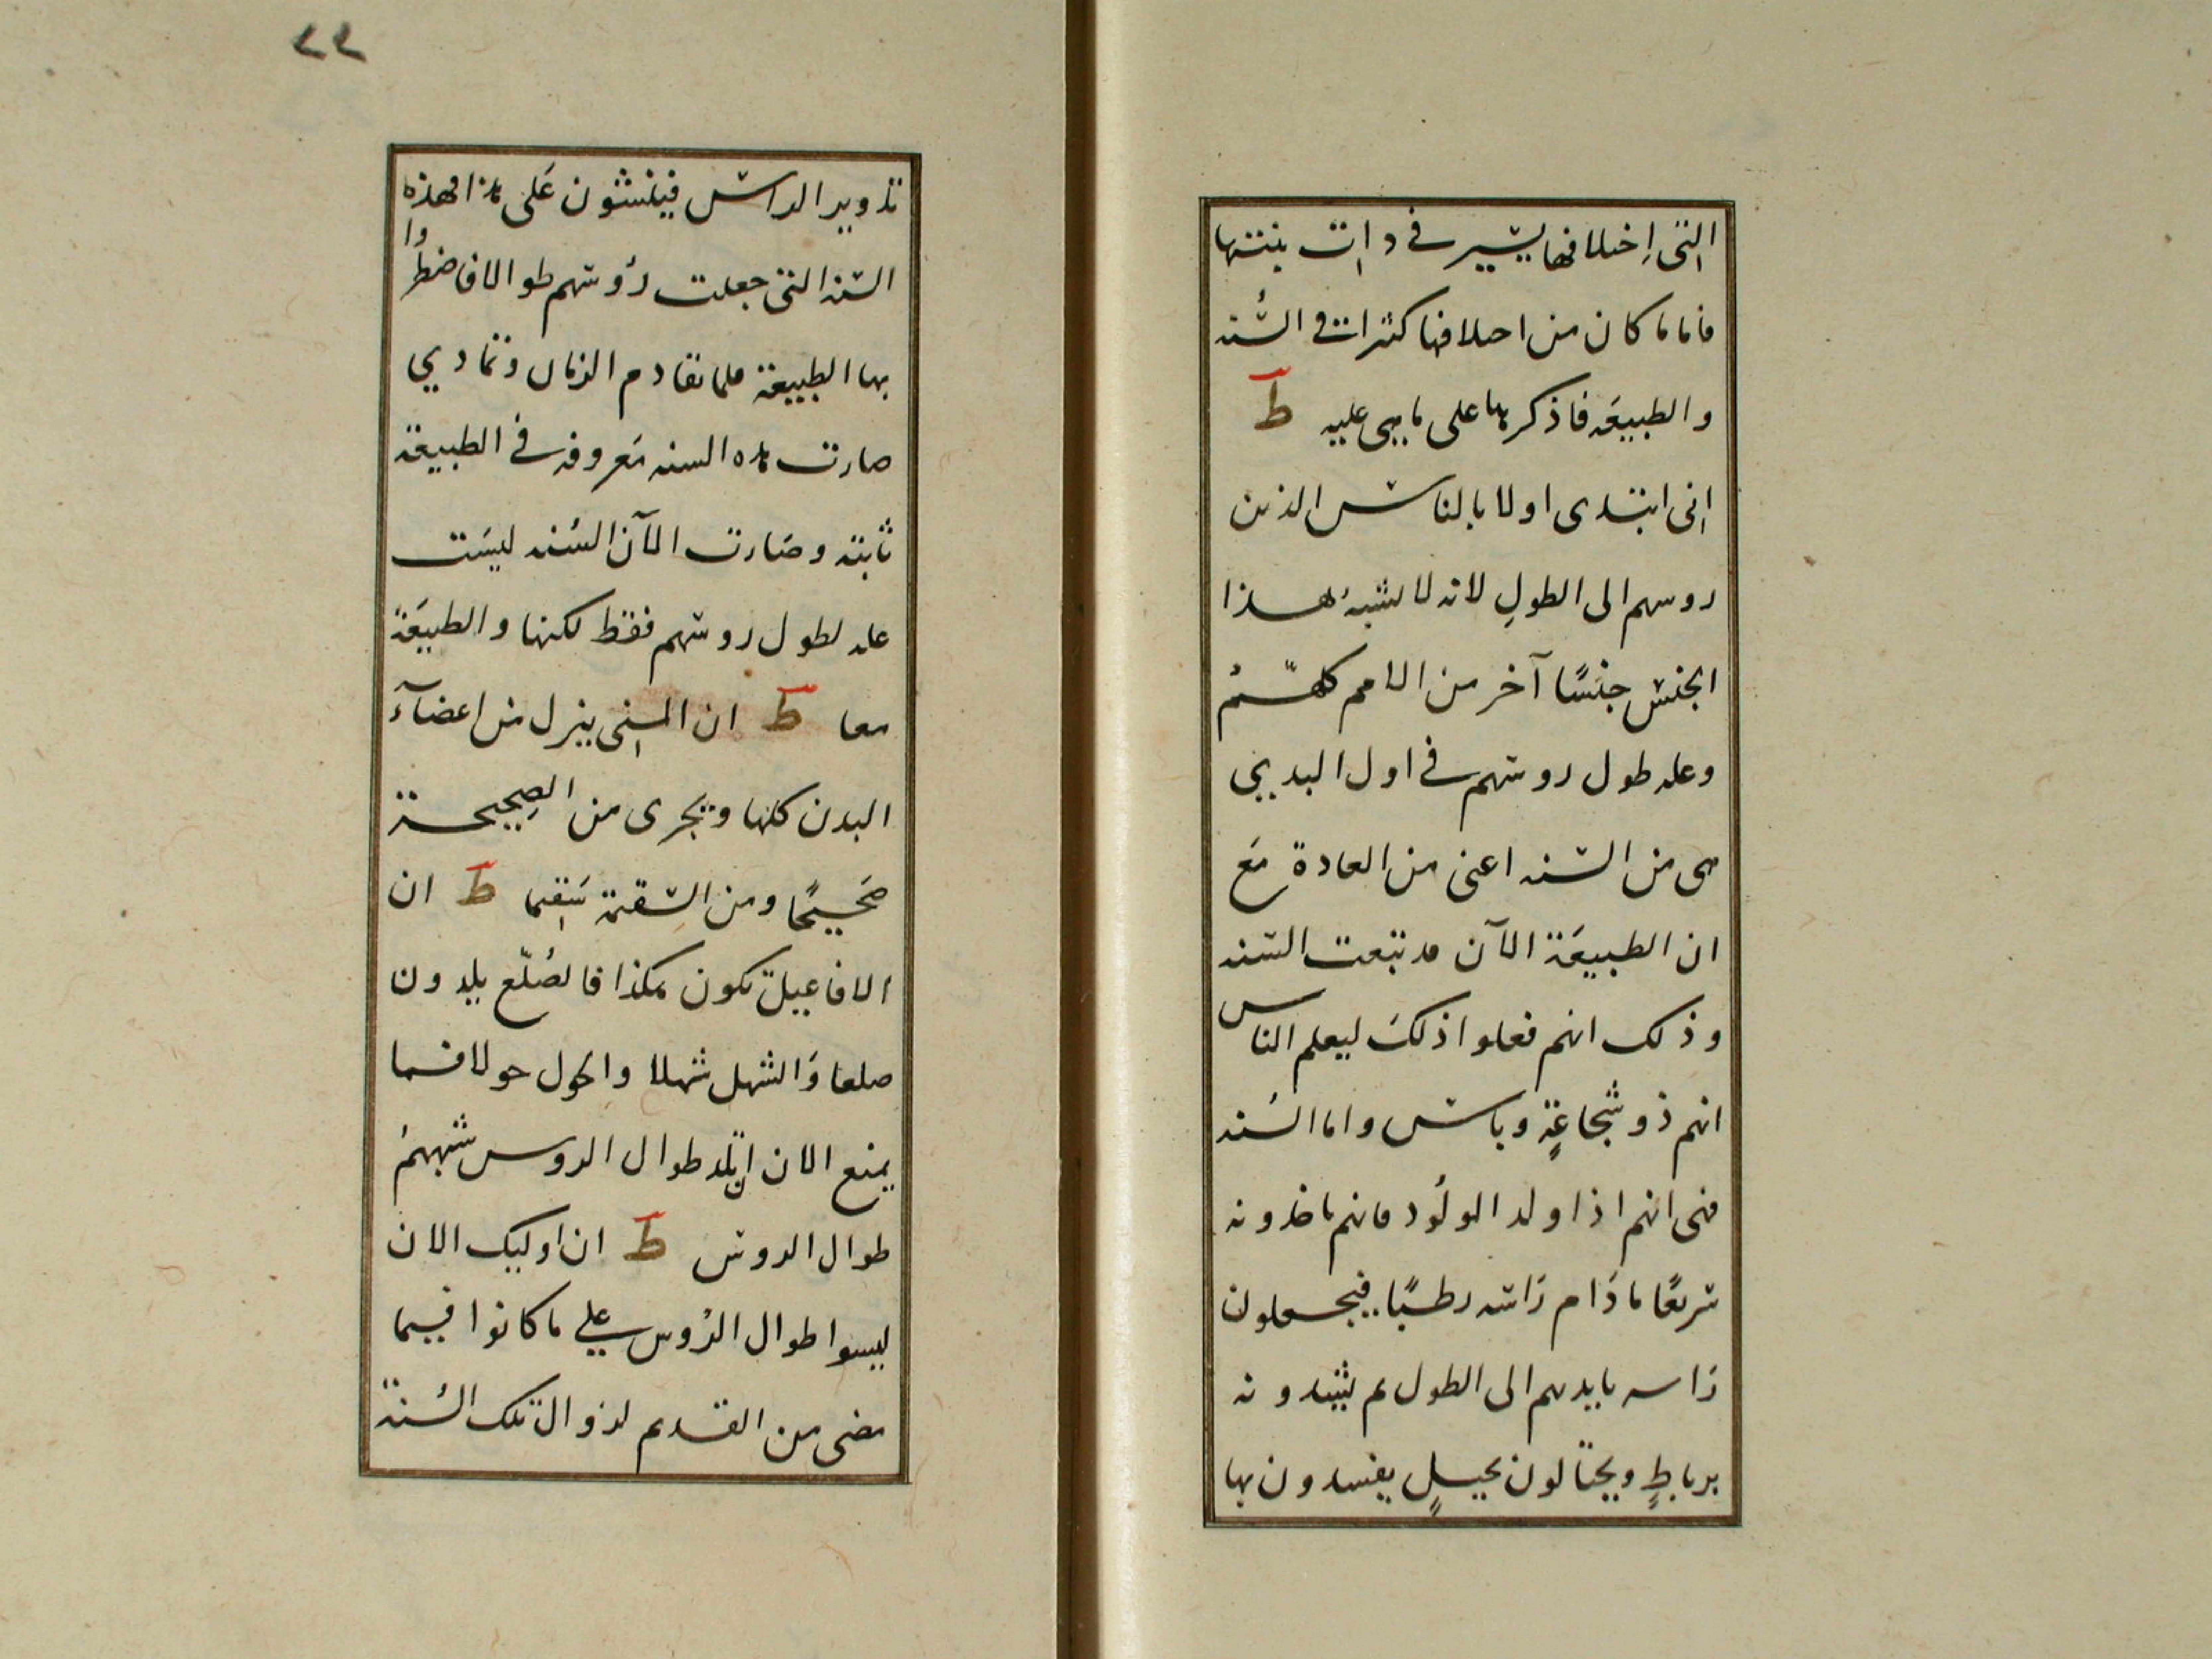 التى اختلافها يسير فى ذات بنتها
فاما ما كان من اختلافها كثيرات فى السُّنه
والطبيعَه فاذكرها على ما هى عليه ط
انى ابتدى اولا بالناس الذين
روسهم الى الطولِ لانه لا يشبهُ هذا
الجنس جنسًا آخر من الامم كلهّمُ
وعله طول روسهم فى اول البديى
هى من السنه اعنى من العادة مَع
ان الطبيعَة الآن قد تبعت السنه
وذلك انهم فعلوا ذلكَ ليعلم الناس
انهم ذو شجاعةٍ وباس واما السُنه
فهى انهم اذا ولد المولُود فانهم ياخذونه
سَريعًا ما دَام رَاسه رطبًا فيجعلون
رَاسه بايديهم الى الطول ثم يشدونه
برباطٍ ويحتالون بحيلٍ يفسدون بها
٢٢
تدوير الراس فينشئون عَلى هذا فهذه
السنه التى جعلت رؤوسهم طوالا فاضطُروا
بها الطبيعة فلما تقادم الزمان وتمادي
صارت هذه السنه مَعروفه فى الطبيعة
ثابته وصَارت الآن السُنه ليسَت
عله لطول روسهم فقط لكنها والطبيعَة
معا ط ان المنى ينزل من اعضآءَ
البدن كلها ويجرى من الصحِيحة
صَحيحًا ومن السَقِيمة سَقيما ط ان
الافاعيل تكون هكذا فالصُلّع يلدون
صلعا وَالشهل شهلا والحول حولا فما
يمنع الان ان يلد طوال الروس شبههمُ
طوال الروس ط ان اوليك الان
ليسوا طوال الرُوس على ما كانوا فيما
مضى من القديم لزوال تلك السُنة